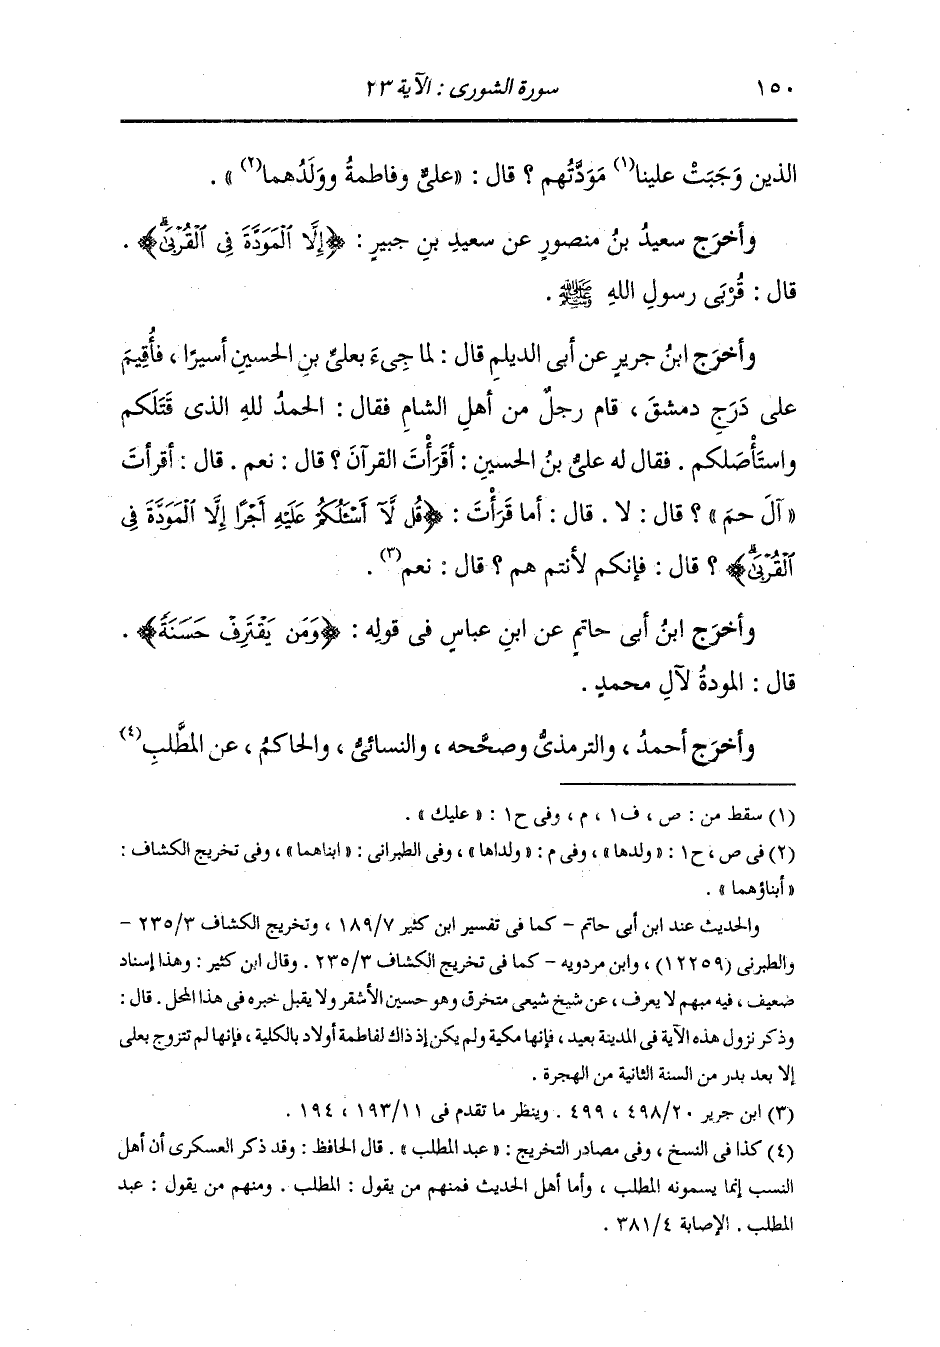 ١٥٠ سورة الشورى : الآية ٢٣
الذين وَجَبَتْ علينا(١) مَوَدَّتُهم ؟ قال : «علىٌّ وفاطمةُ ووَلَدُهما(٢)» .
وأخرَج سعيدُ بنُ منصورٍ عن سعيدِ بنِ جبيرٍ : ﴿إِلَّا ٱلْمَوَدَّةَ فِى ٱلْقُرْبَىٰۗ﴾ .
قال : قُرْبَى رسولِ اللهِ ﷺ .
وأخرَج ابنُ جريرٍ عن أبى الديلمِ قال : لما جِىءَ بعلىِّ بنِ الحسينِ أسيرًا ، فأُقِيمَ
على دَرَجِ دمشقَ ، قام رجلٌ من أهلِ الشامِ فقال : الحمدُ للهِ الذى قَتَلَكم
واستَأْصَلكم . فقال له علىُّ بنُ الحسينِ : أقَرَأْتَ القرآنَ ؟ قال : نعم . قال : أقرأتَ
«آلَ حمَ» ؟ قال : لا . قال : أما قَرَأْتَ : ﴿قُل لَّآ أَسْـَٔلُكُمْ عَلَيْهِ أَجْرًا إِلَّا ٱلْمَوَدَّةَ فِى
ٱلْقُرْبَىٰۗ﴾ ؟ قال : فإنكم لأنتم هم ؟ قال : نعم(٣) .
وأخرَج ابنُ أبى حاتمٍ عن ابنِ عباسٍ فى قولِه : ﴿وَمَن يَقْتَرِفْ حَسَنَةً﴾ .
قال : المودةُ لآلِ محمدٍ .
وأخرَج أحمدُ ، والترمذىُّ وصحَّحه ، والنسائىُّ ، والحاكمُ ، عن المطَّلبِ(٤)
(١) سقط من : ص ، ف١ ، م ، وفى ح١ : «عليك» .
(٢) فى ص ، ح١ : «ولدها» ، وفى م : «ولداها» ، وفى الطبرانى : «ابناهما» ، وفى تخريج الكشاف :
«أبناؤهما» .
والحديث عند ابن أبى حاتم – كما فى تفسير ابن كثير ١٨٩/٧ ، وتخريج الكشاف ٢٣٥/٣ –
والطبرنى (١٢٢٥٩) ، وابن مردويه – كما فى تخريج الكشاف ٢٣٥/٣ . وقال ابن كثير : وهذا إسناد
ضعيف ، فيه مبهم لا يعرف ، عن شيخ شيعى متخرق وهو حسين الأشقر ولا يقبل خبره فى هذا المحل . قال :
وذكر نزول هذه الآية فى المدينة بعيد ، فإنها مكية ولم يكن إذ ذاك لفاطمة أولاد بالكلية ، فإنها لم تتزوج بعلى
إلا بعد بدر من السنة الثانية من الهجرة .
(٣) ابن جرير ٤٩٨/٢٠ ، ٤٩٩ . وينظر ما تقدم فى ١٩٣/١١ ، ١٩٤ .
(٤) كذا فى النسخ ، وفى مصادر التخريج : «عبد المطلب» . قال الحافظ : وقد ذكر العسكرى أن أهل
النسب إنما يسمونه المطلب ، وأما أهل الحديث فمنهم من يقول : المطلب . ومنهم من يقول : عبد
المطلب . الإصابة ٣٨١/٤ .